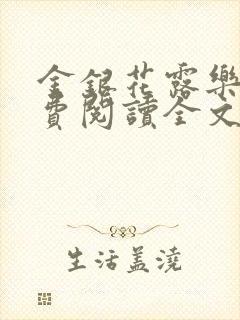 金銀花露樂
費閱讀全文
生活盖澆